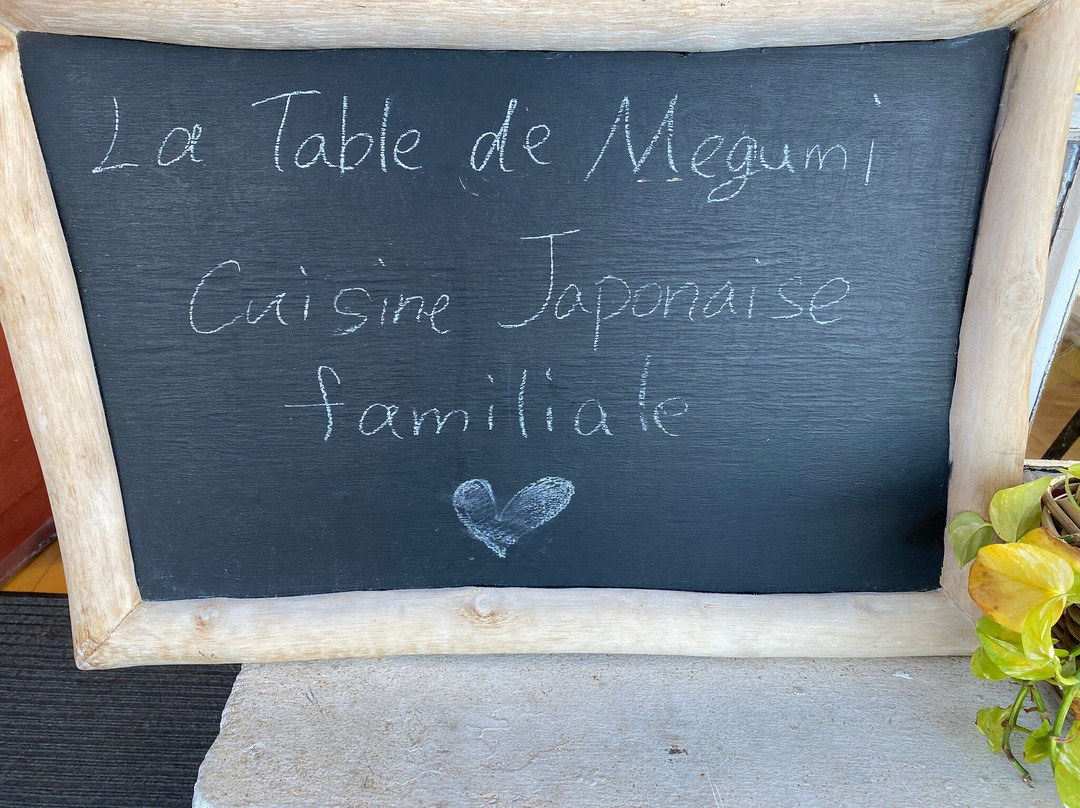 La Table de Megumi
Cuisine Japonaise
familiale